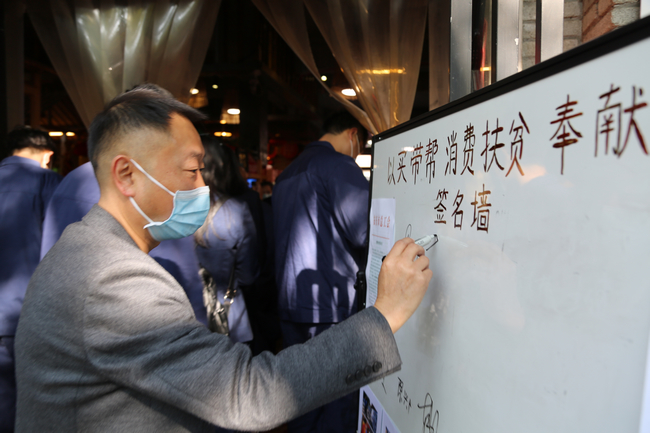 以买带帮 消费扶贫 奉献
签名墙